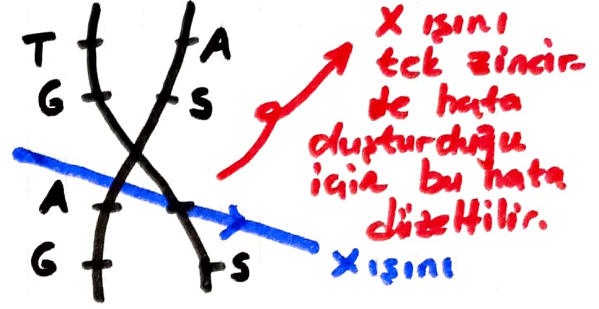 T A
G S
A
G S
X ışını
tek zincir-
de hata
oluşturduğu
için bu hata
düzeltilir.
X ışını